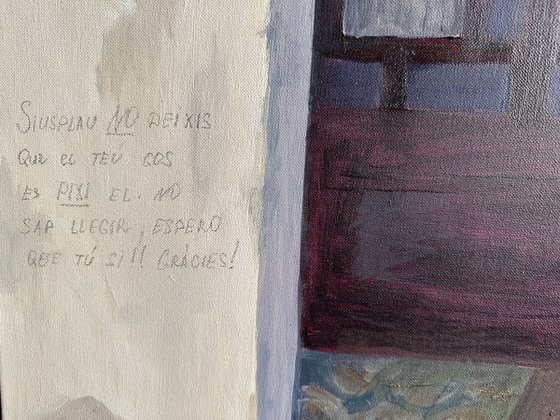 SIUSPLAU NO DEIXIS
QUE EL TEU GOS
ES PIXI EL. NO
SAP LLEGIR, ESPERO
QUE TÚ SI!! GRÀCIES!